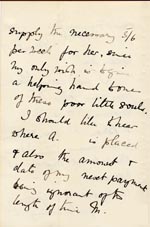 supply the necessary 5/6
per week for her, since
my only wish is to give
a helping hand to one
of these poor little souls.
I should like to hear
where A. is placed
& also the amount &
date of my next payment
being ignorant of the
length of time Mr.